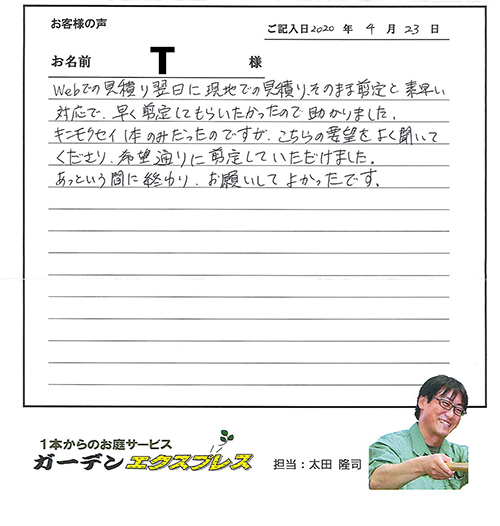 お客様の声
ご記入日2020 年 4 月 23 日
お名前 T 様
Webでの見積り翌日に現地での見積り、そのまま剪定と素早い
対応で、早く剪定してもらいたかったので助かりました。
キンモクセイ1本のみだったのですが、こちらの要望をよく聞いて
くださり、希望通りに剪定していただけました。
あっという間に終わり、お願いしてよかったです。
1本からのお庭サービス
ガーデンエクスプレス
担当:太田 隆司